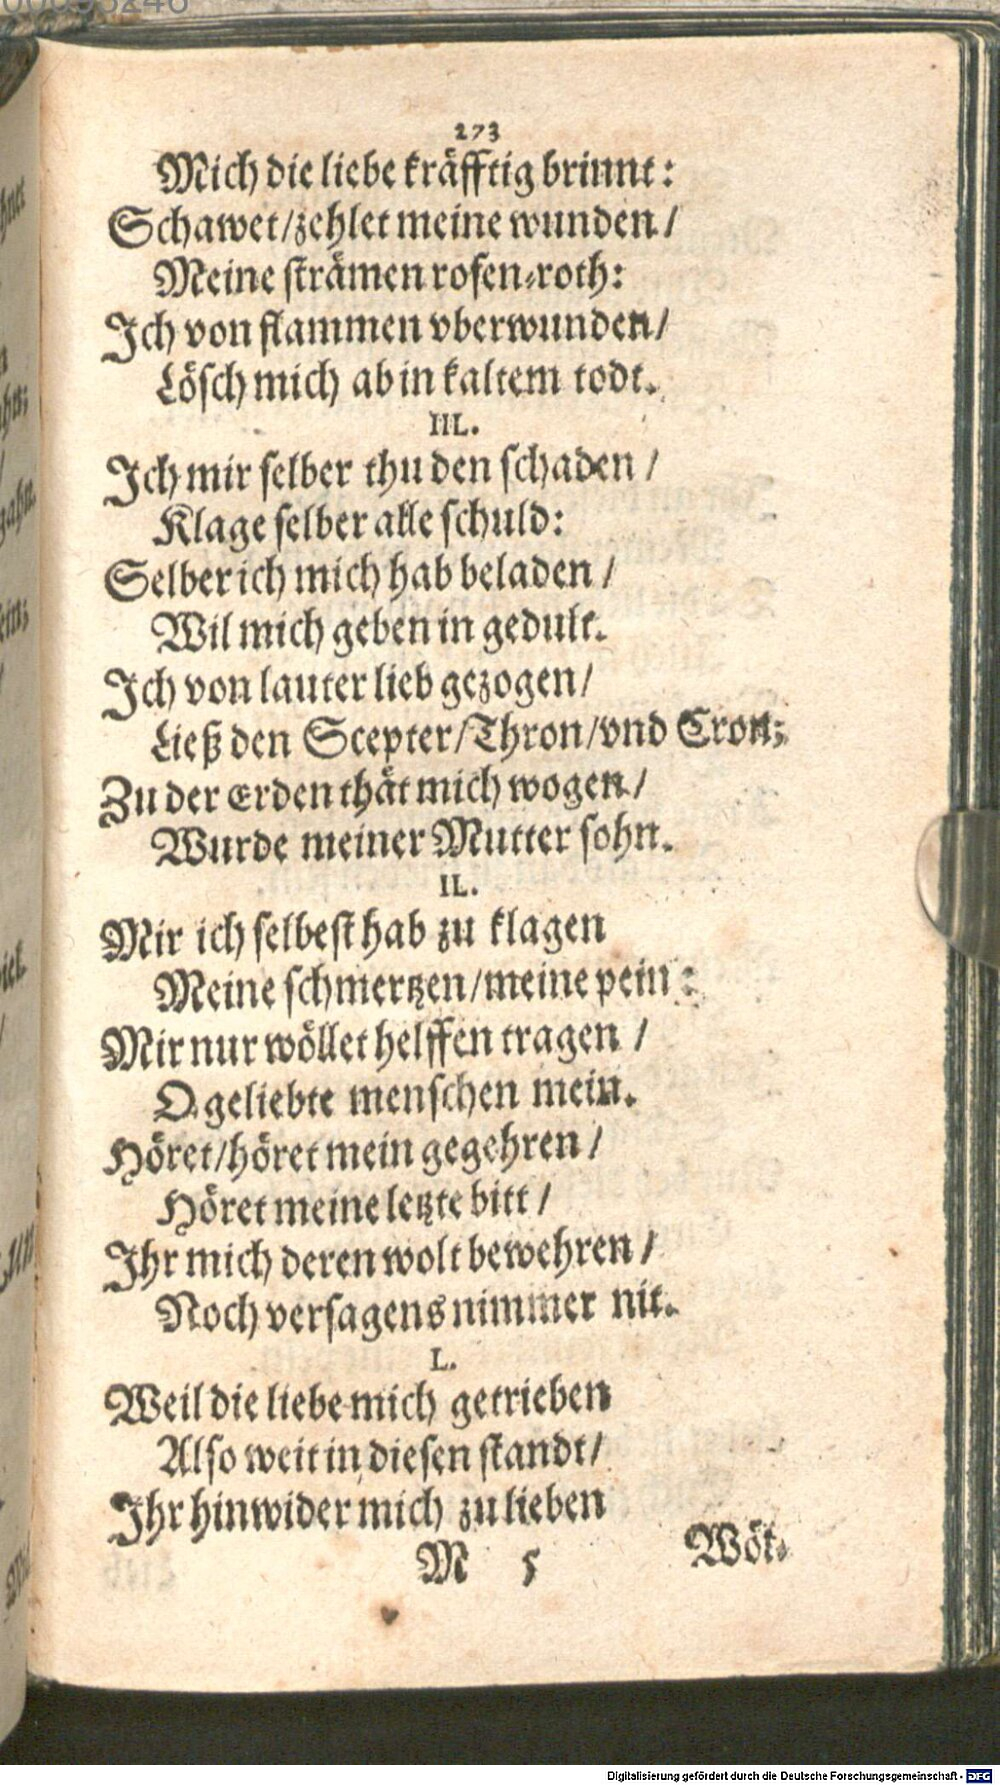 273
Mich die liebe kräfftig brinnt:
Schawet/zehlet meine wunden/
Meine strämen rosen-roth:
Ich von flammen vberwunden/
Lösch mich ab in kaltem todt.
III.
Ich mir selber thu den schaden /
Klage selber alle schuld:
Selber ich mich hab beladen /
Wil mich geben in gedult.
Ich von lauter lieb gezogen/
Ließ den Scepter/Thron/vnd Cron;
Zu der Erden thät mich wogen/
Wurde meiner Mutter sohn.
IL.
Mir ich selbest hab zu klagen
Meine schmertzen/meine pein:
Mir nur wöllet helffen tragen /
O geliebte menschen mein.
Höret/höret mein gegehren /
Höret meine letzte bitt /
Ihr mich deren wolt bewehren /
Noch versagens nimmer nit.
L.
Weil die liebe mich getrieben
Also weit in diesen standt/
Ihr hinwider mich zu lieben
M 5 Wöl-
Digitalisierung gefördert durch die Deutsche Forschungsgemeinschaft - DFG